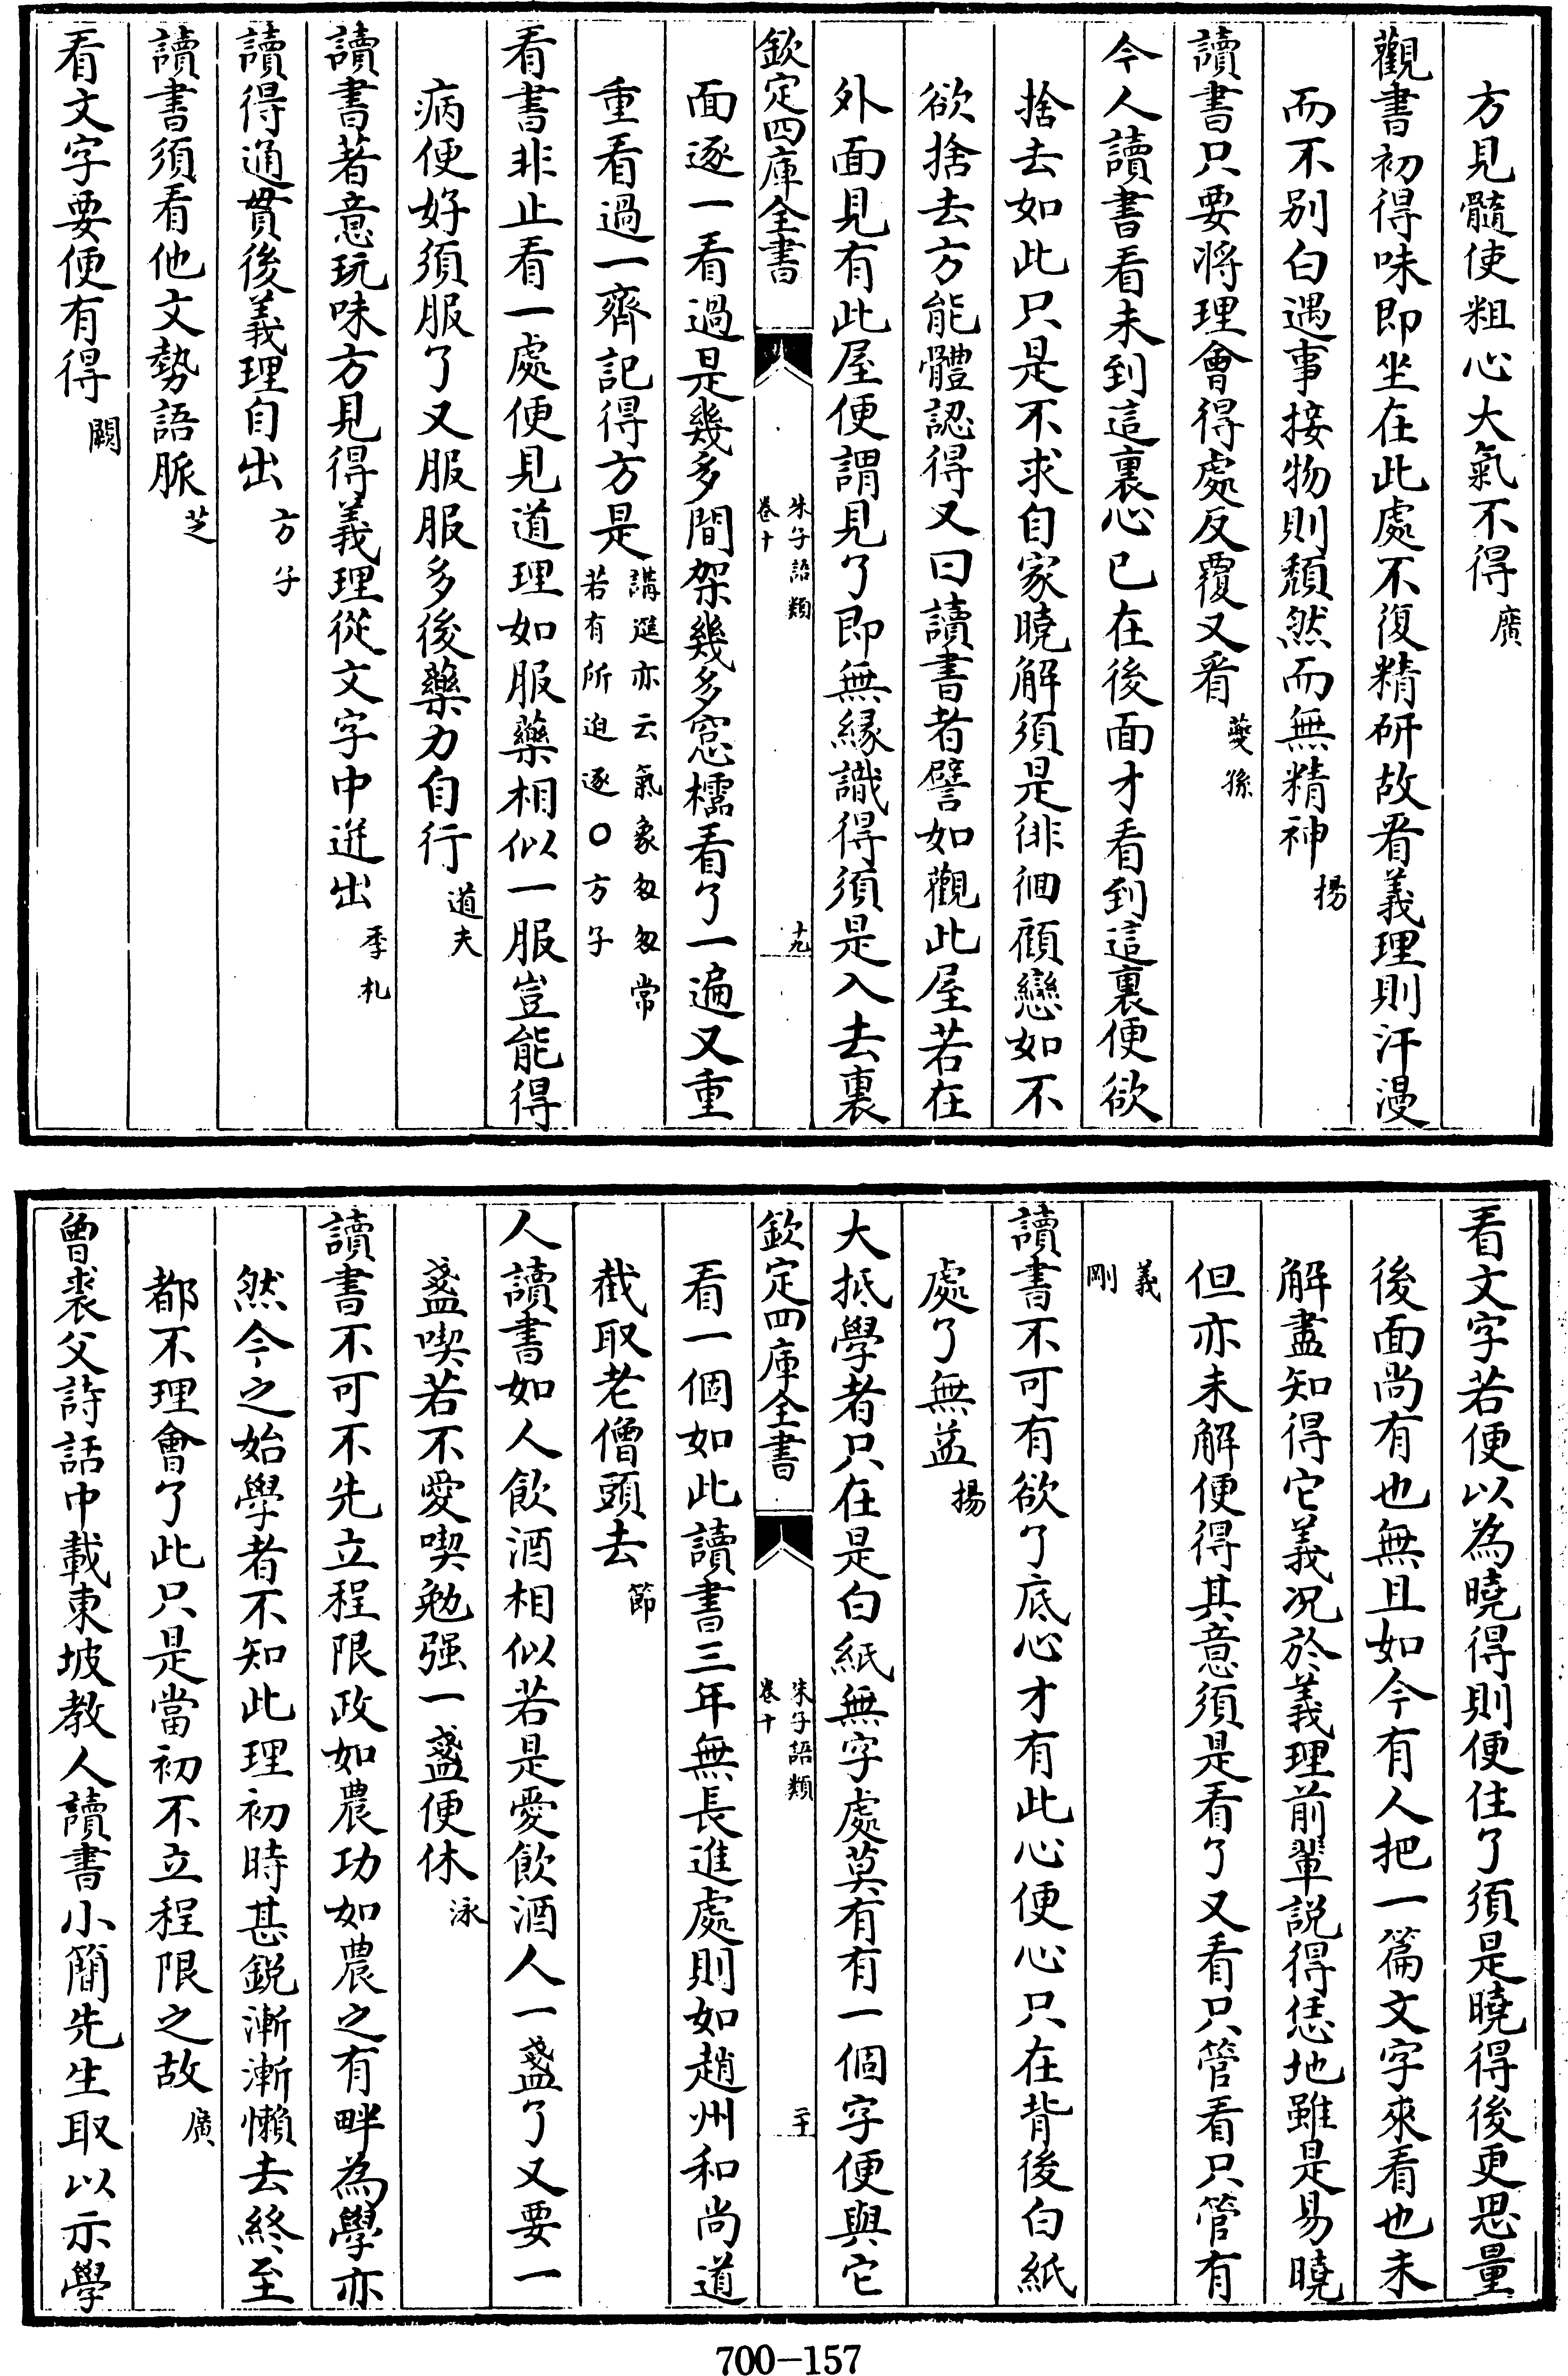 方見髓使粗心大氣不得廣
觀書初得味即坐在此處不復精研故看義理則汗漫
而不别白遇事接物則頽然而無精神揚
讀書只要將理會得處反覆又看夔孫
今人讀書看未到這裏心已在後面才看到這裏便欲
捨去如此只是不求自家曉解須是徘徊顧戀如不
欲捨去方能體認得又曰讀書者譬如觀此屋若在
外面見有此屋便謂見了即無緣識得須是入去裏
欽定四庫全書
朱子語類
卷十
十九
面逐一看過是幾多間架幾多窓櫺看了一遍又重
重看過一齊記得方是講筵亦云氣象匆匆常
若有所迫逐○方子
看書非止看一處便見道理如服藥相似一服豈能得
病便好須服了又服服多後藥力自行道夫
讀書著意玩味方見得義理從文字中迸出季札
讀得通貫後義理自出方子
讀書須看他文勢語脈芝
看文字要便有得闕
看文字若便以為曉得則便住了須是曉得後更思量
後面尚有也無且如今有人把一篇文字來看也未
解盡知得它義况於義理前輩説得恁地雖是易曉
但亦未解便得其意須是看了又看只管看只管有
義
剛
讀書不可有欲了底心才有此心便心只在背後白紙
處了無益揚
大抵學者只在是白紙無字處莫有有一個字便與它
欽定四庫全書
朱子語類
卷十
二十
看一個如此讀書三年無長進處則如趙州和尚道
截取老僧頭去節
人讀書如人飲酒相似若是愛飲酒人一盞了又要一
盞喫若不愛喫勉强一盞便休泳
讀書不可不先立程限政如農功如農之有畔為學亦
然今之始學者不知此理初時甚鋭漸漸懶去終至
都不理會了此只是當初不立程限之故廣
曾裘父詩話中載東坡教人讀書小簡先生取以示學
700-157